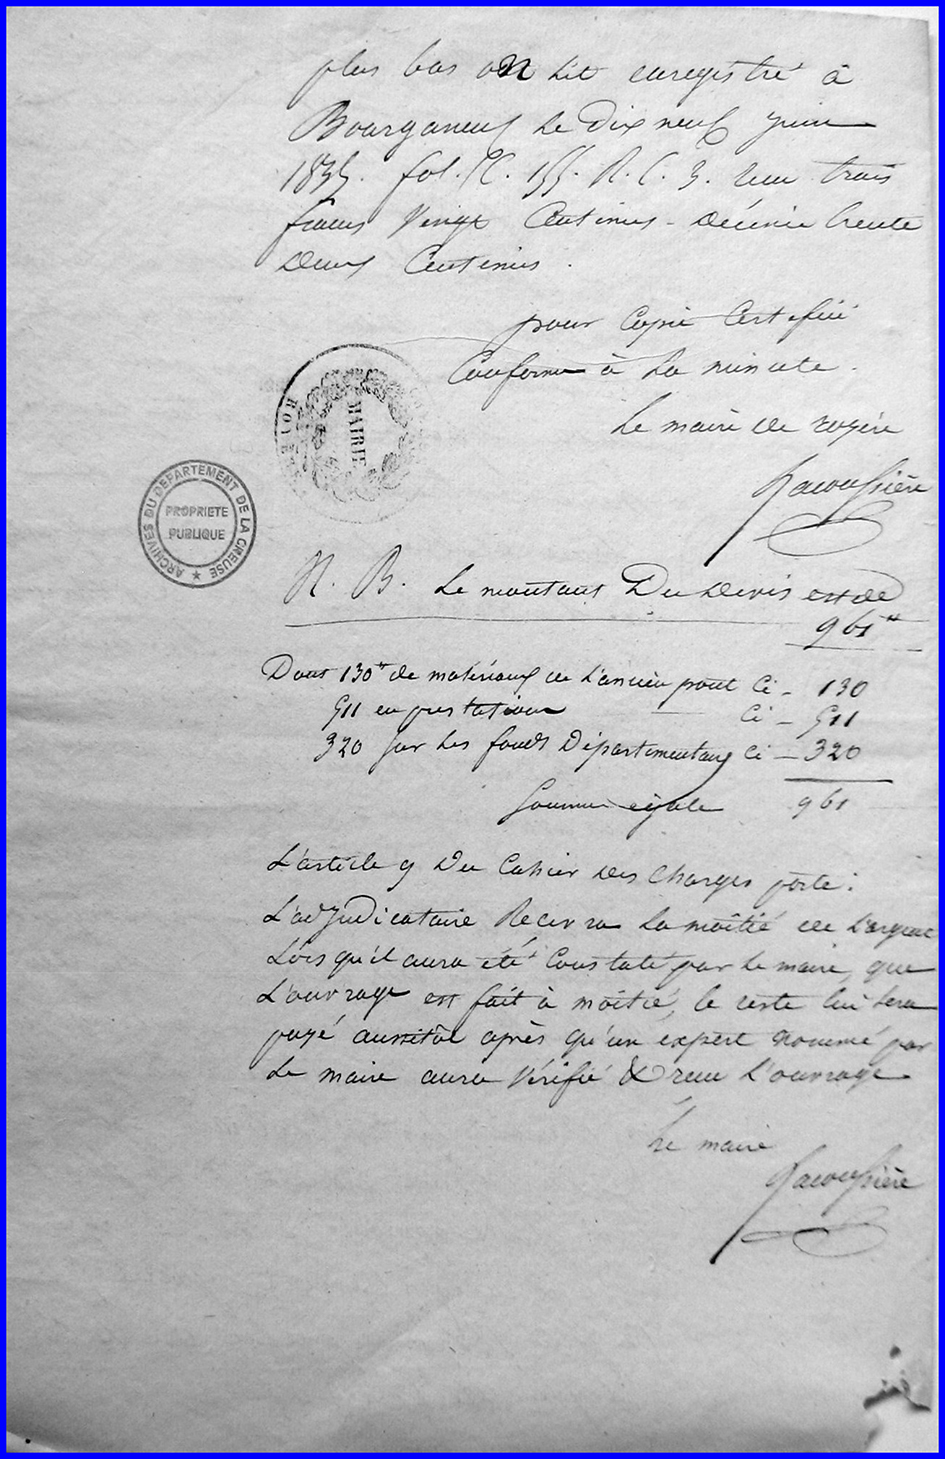 plus bas on lit enregistré à
Bourganeuf le dix neuf juin
1835. fol. 155. R. C. 3. reçu trois
francs Vingt Centimes - décime trente
deux Centimes.
pour Copie Certifiée
Conforme à la minute.
Le maire de royère
MAIRIE
ARCHIVES DU DEPARTEMENT DE LA CREUSE
PROPRIETE
PUBLIQUE
N. B. Le montant Du Devis est de
961
Dont 130 de matériaux de l'ancien pont Ci - 130
511 en prestation Ci - 511
320 sur les fonds Départementaux Ci - 320
Somme égale 961
L'article 9 Du Cahier des Charges porte:
L'adjudicataire Recevra la moitié de l'argent
Lorsqu'il aura été Constaté par le maire, que
L'ouvrage est fait à moitié, le reste lui sera
payé aussitôt après qu'un expert nommé par
Le maire aura Vérifié & reçu l'ouvrage
Le maire